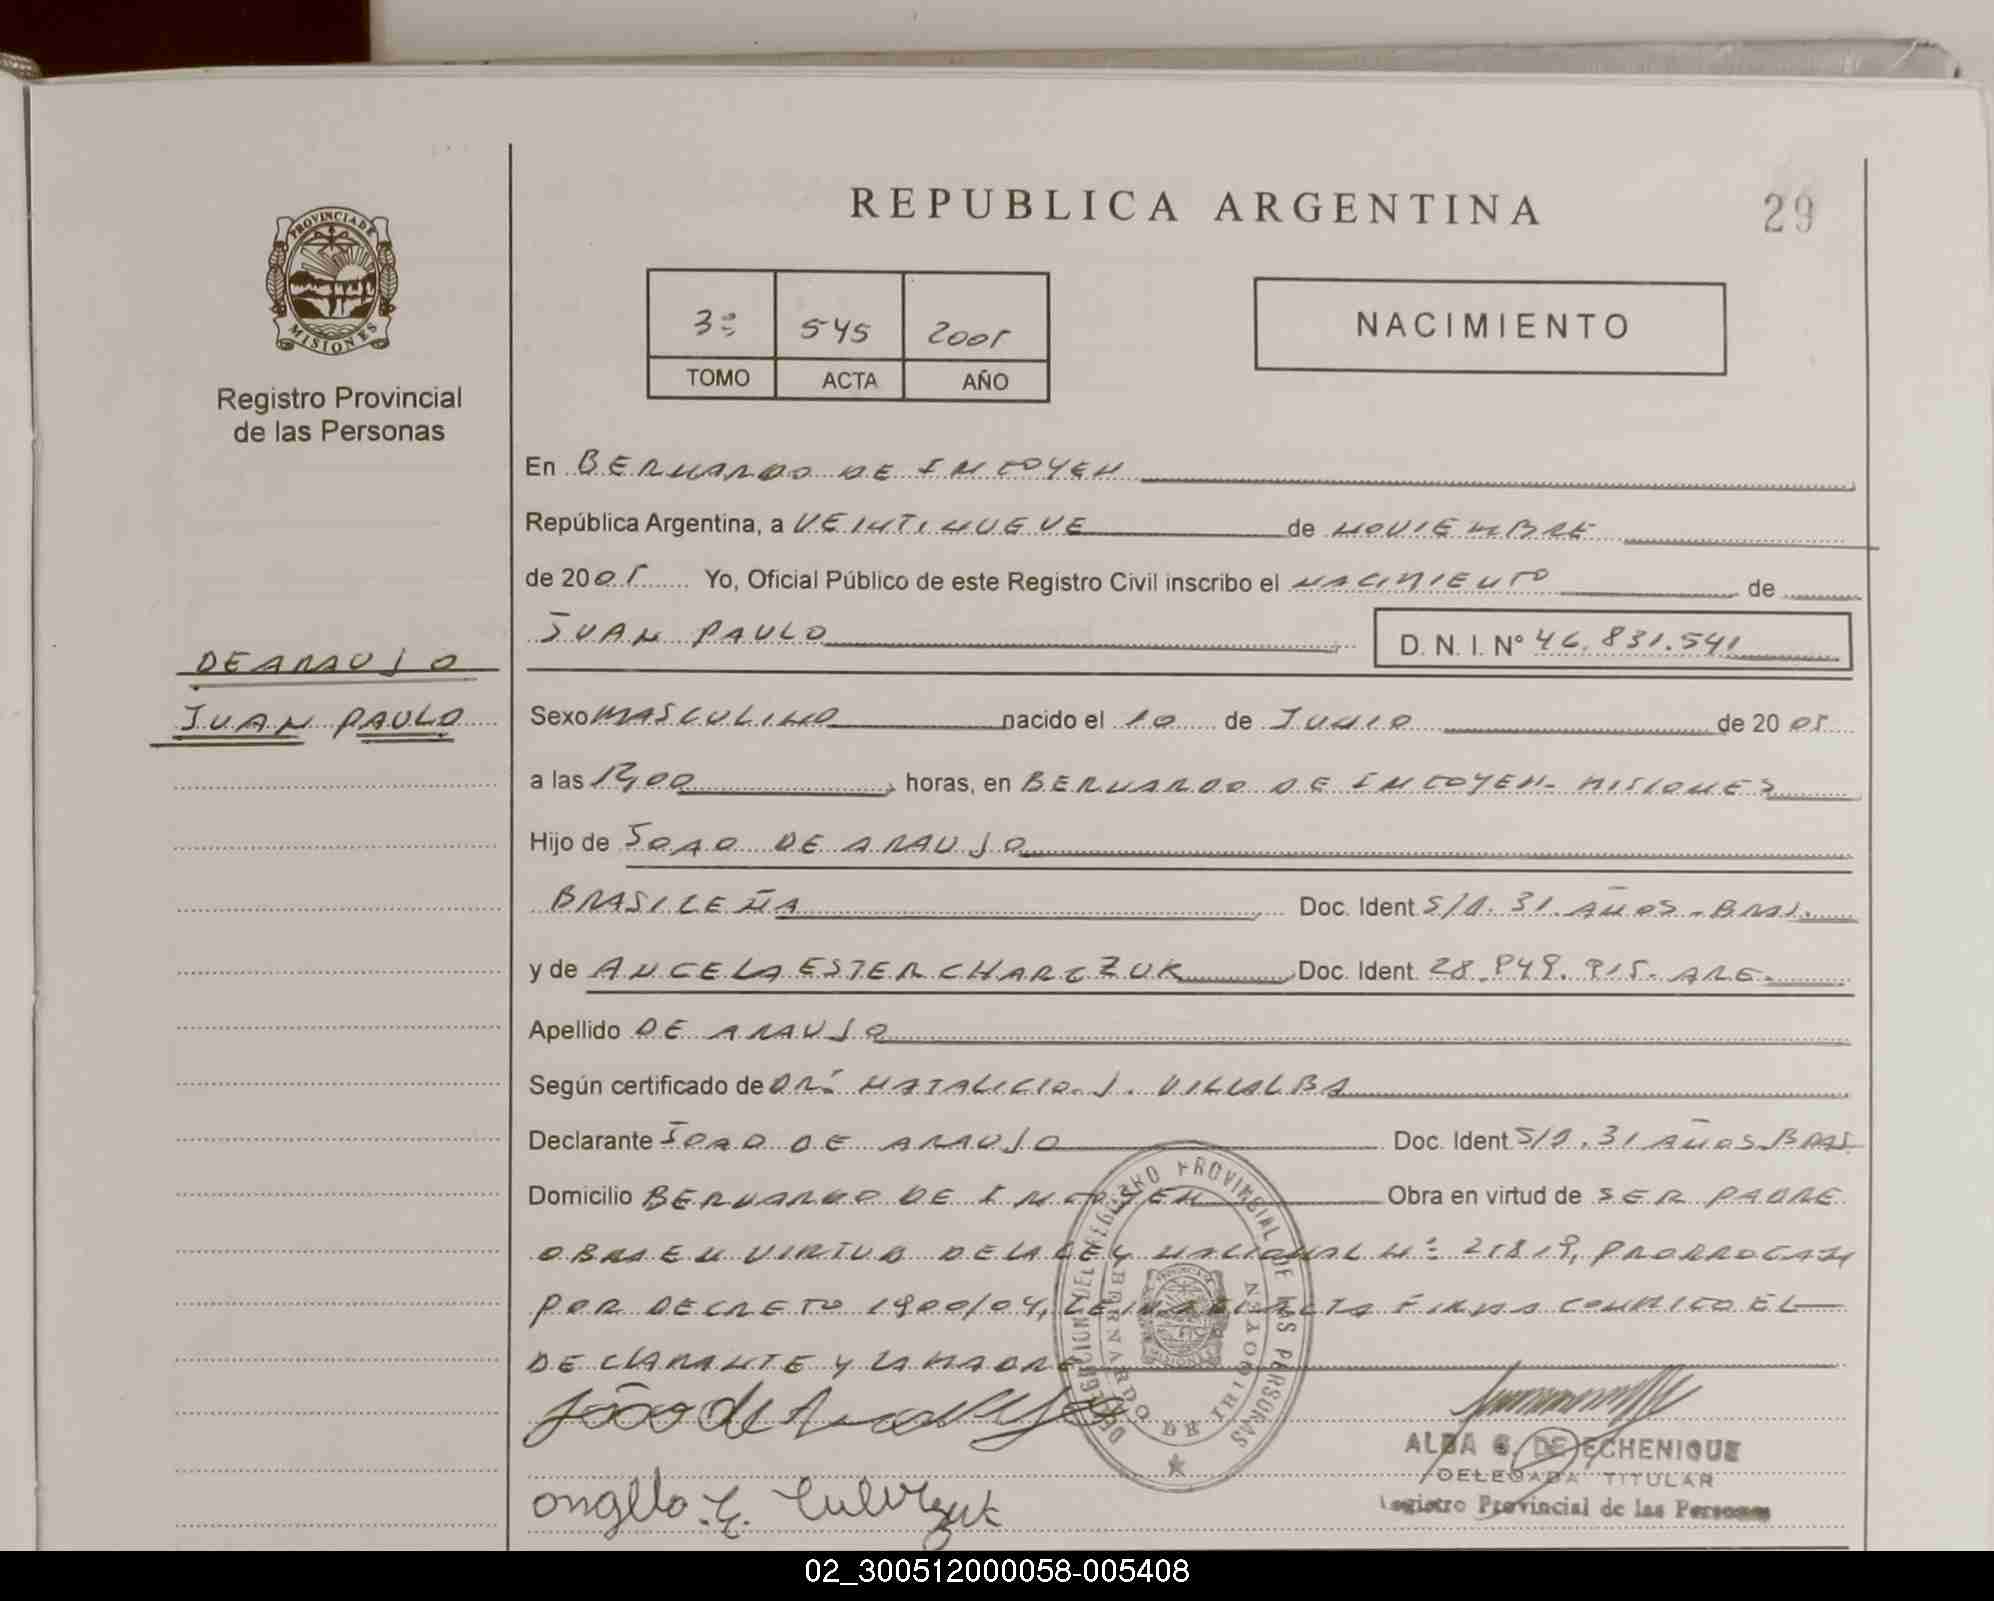 REPUBLICA ARGENTINA
29
PROVINCIA DE
MISIONES
Registro Provincial
de las Personas
3º 545 2005
TOMO ACTA AÑO
NACIMIENTO
En BERNARDO DE IRIGOYEN
República Argentina, a VEINTINUEVE de NOVIEMBRE
de 2005 Yo, Oficial Público de este Registro Civil inscribo el NACIMIENTO de
JUAN PAULO D. N. I. Nº 46.831.541
DE ARAUJO
JUAN PAULO
Sexo MASCULINO nacido el 10 de JUNIO de 2005
a las horas, en BERNARDO DE IRIGOYEN- MISIONES
Hijo de JOAO DE ARAUJO
BRASILEÑA Doc. Ident S/D. 31 AÑOS - BRAS.
y de ANGELA ESTER Doc. Ident. ARG.
Apellido DE ARAUJO
Según certificado de DR. NATALICIO J. VILLALBA
Declarante JOAO DE ARAUJO Doc. Ident S/D. 31 AÑOS BRAS
Domicilio BERNARDO DE IRIGOYEN Obra en virtud de SER PADRE
OBRA EN VIRTUD DE LA LEY NACIONAL Nº 25819, PRORROGADA
POR DECRETO 1900/04, LEIDA EL ACTA FIRMA CONMIGO EL
DECLARANTE Y LA MADRE
João de Araujo
DELEGACION DEL REGISTRO PROVINCIAL DE LAS PERSONAS
BERNARDO DE IRIGOYEN
ALBA G. DE ECHENIQUE
DELEGADA TITULAR
Registro Provincial de las Personas
02_300512000058-005408